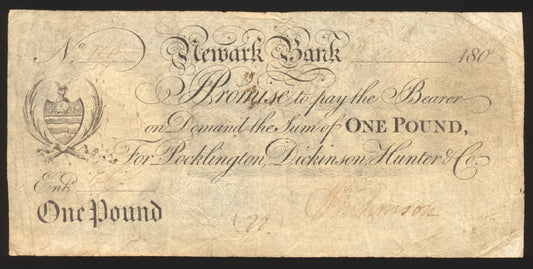 No.
Newark Bank 180
I Promise to pay the Bearer
on Demand the Sum of ONE POUND,
For Pocklington, Dickinson, Hunter & Co.
Entd.
One Pound